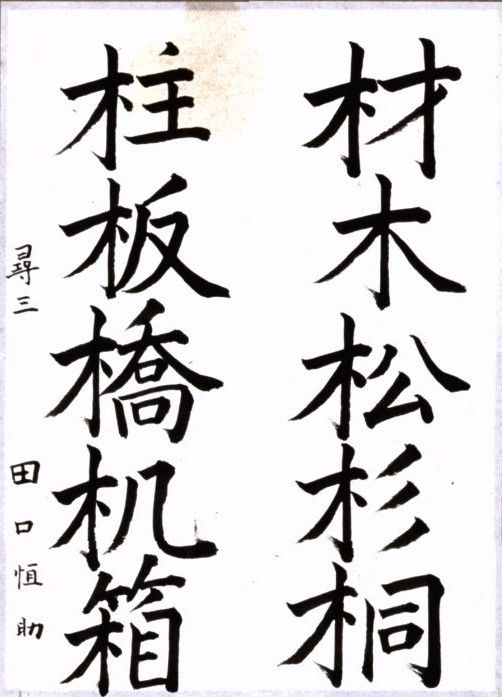 材木松杉桐
柱板橋机箱
尋三
田口恒助